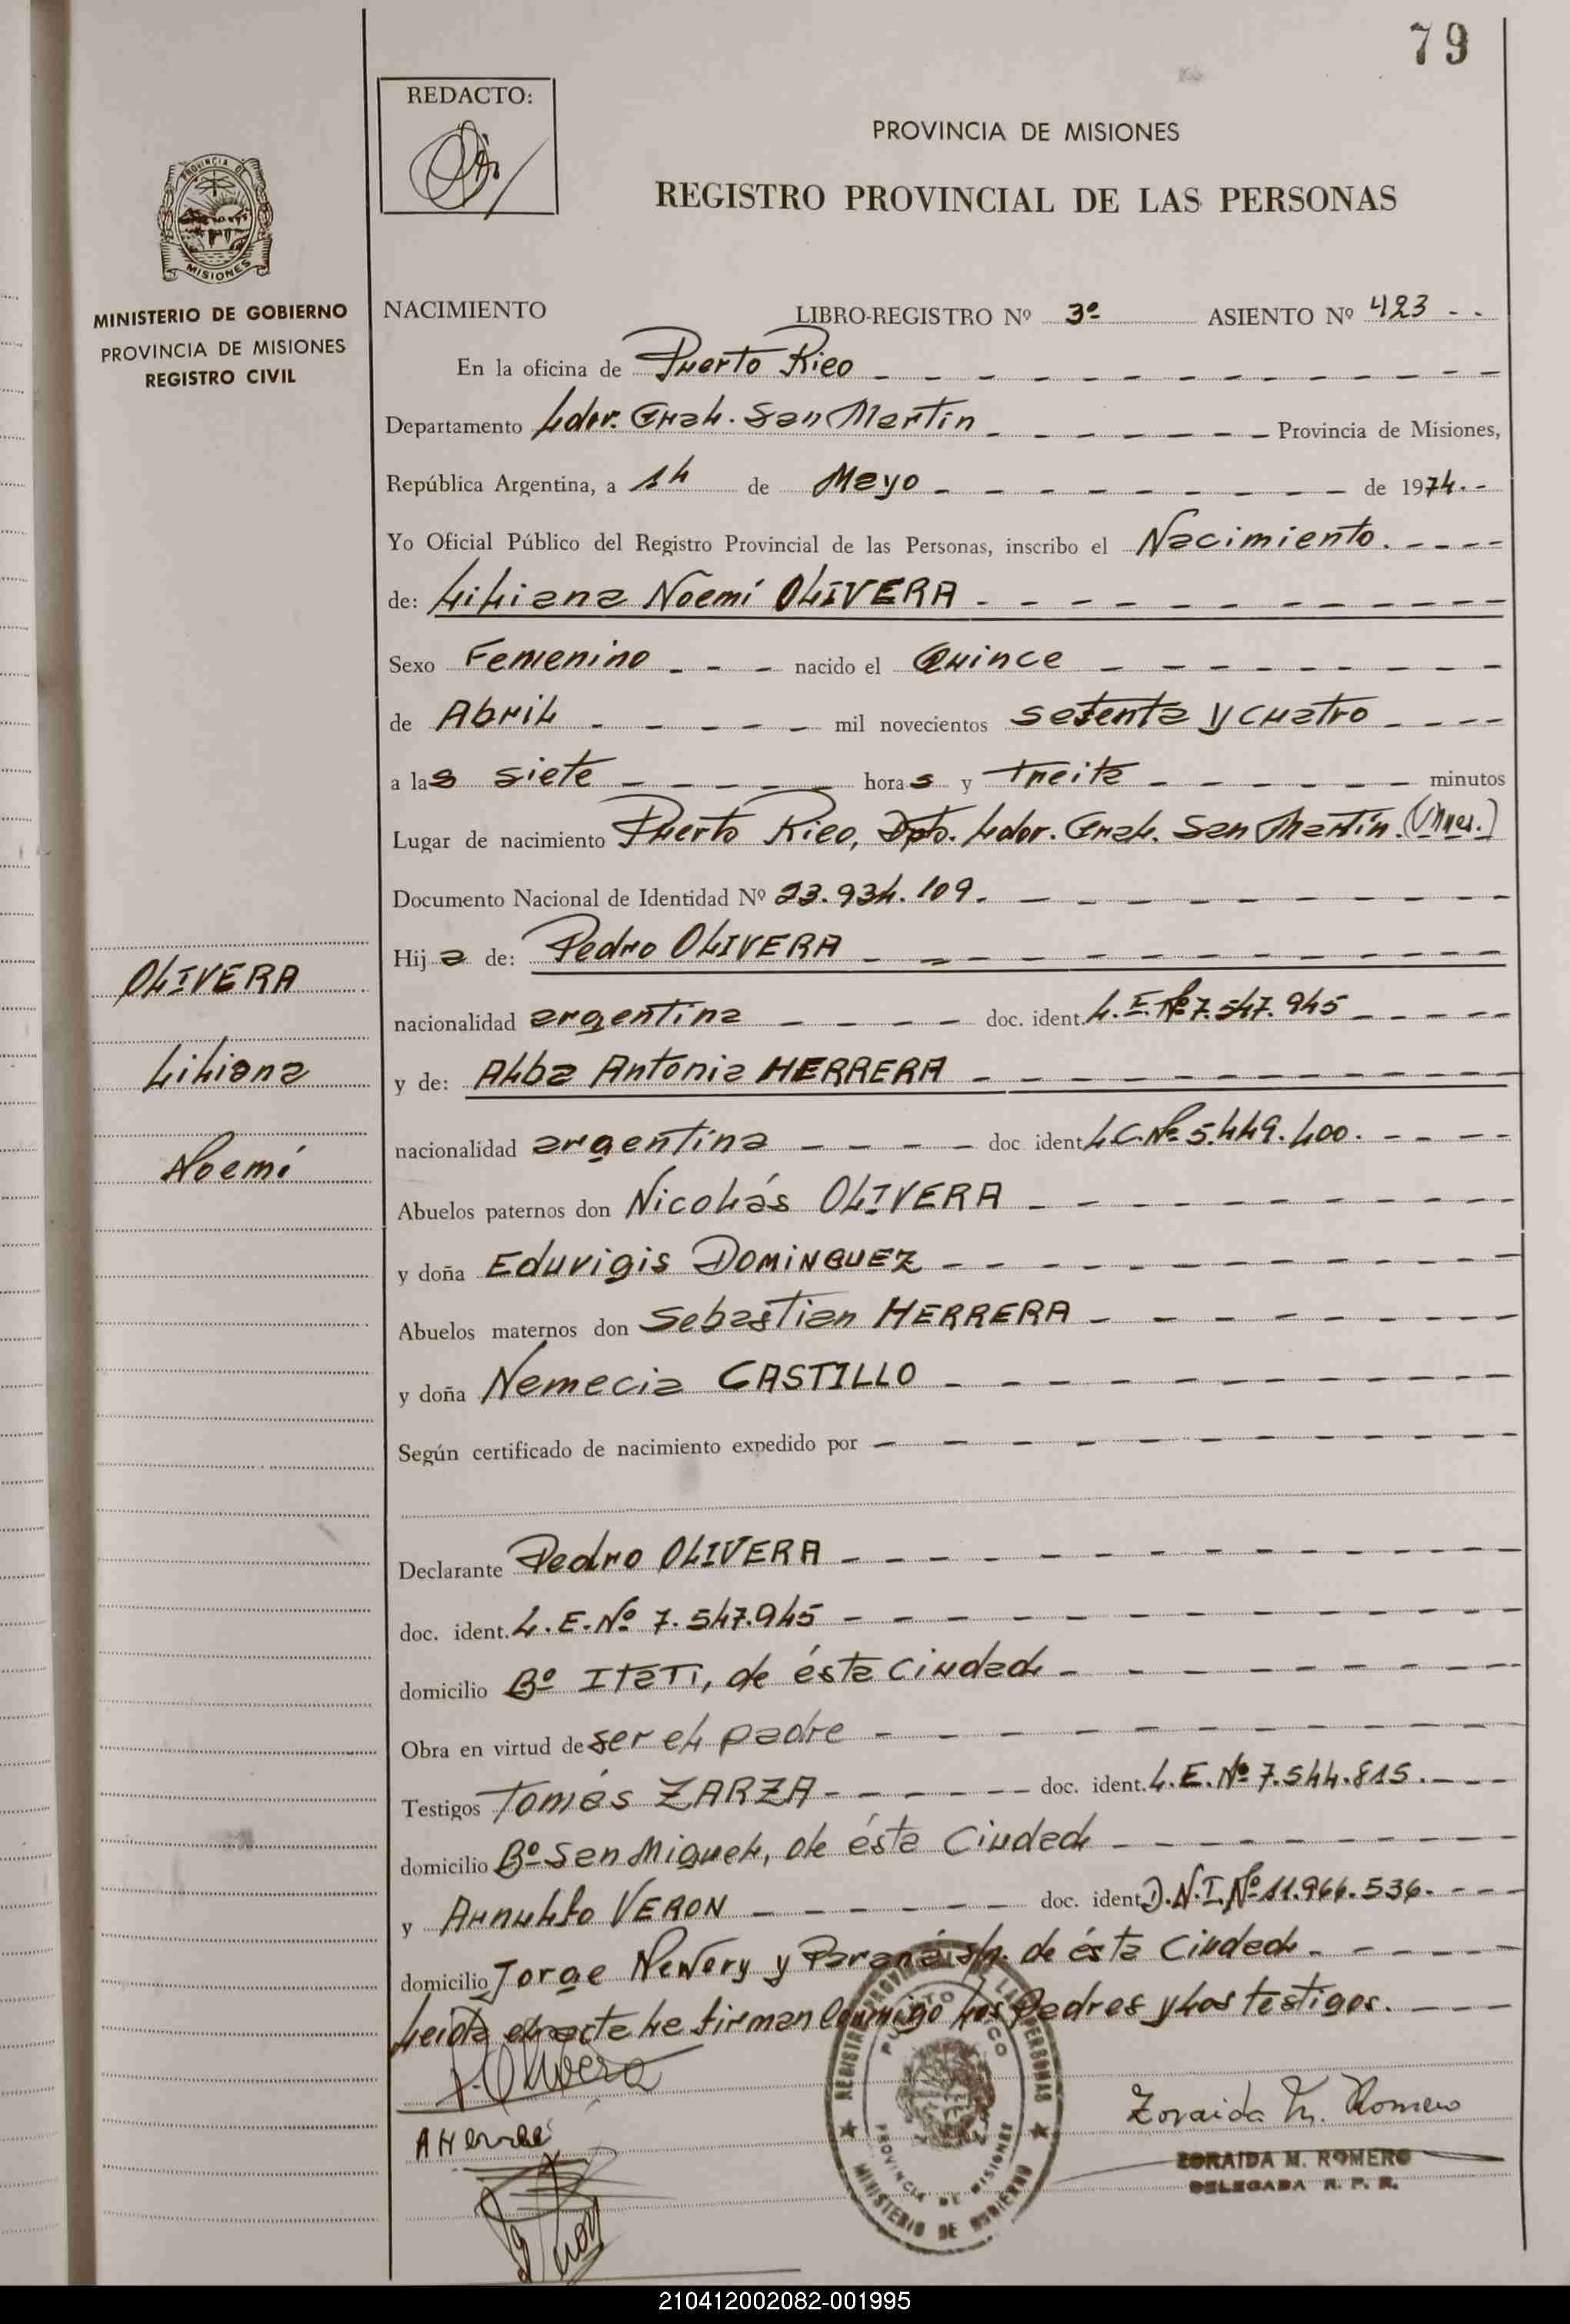 79
REDACTO:
PROVINCIA DE MISIONES
REGISTRO PROVINCIAL DE LAS PERSONAS
PROVINCIA DE
MISIONES
MINISTERIO DE GOBIERNO
PROVINCIA DE MISIONES
REGISTRO CIVIL
NACIMIENTO LIBRO-REGISTRO Nº 3º ASIENTO Nº 423 - -
En la oficina de Puerto Rico
Departamento Ldor. Gral. San Martín Provincia de Misiones,
República Argentina, a 14 de Mayo de 1974.-
Yo Oficial Público del Registro Provincial de las Personas, inscribo el Nacimiento.
de: Liliana Noemí OLIVERA
Sexo Femenino nacido el Quince
de Abril mil novecientos setenta y cuatro
a las siete horas y treita minutos
Lugar de nacimiento Puerto Rico, Dpto. Ldor. Gral. San Martín. (Mnes.)
Documento Nacional de Identidad Nº 23.934.109.
Hija de: Pedro OLIVERA
nacionalidad argentina doc. ident. L.E. Nº 7.547.945
y de: Alba Antonia HERRERA
nacionalidad argentina doc ident L.C. Nº 5.449.400.
Abuelos paternos don Nicolás OLIVERA
y doña Eduvigis DOMINGUEZ
Abuelos maternos don Sebastian HERRERA
y doña Nemecia CASTILLO
Según certificado de nacimiento expedido por
OLIVERA
Liliana
Noemí
Declarante Pedro OLIVERA
doc. ident. L.E. Nº 7.547.945
domicilio Bº ITATI, de ésta ciudad
Obra en virtud de ser el padre
Testigos Tomás ZARZA doc. ident. L.E. Nº 7.544.815.
domicilio Bº San Miguel, de ésta Ciudad
y Arnulfo VERON doc. ident. D.N.I. Nº 11.966.536.
domicilio Jorge Newery y Paraná s/n. de ésta Ciudad
Leida el acta le firman conmigo los Padres y los testigos.
P. Olivera
REGISTRO PROVINCIAL DE LAS PERSONAS
PUERTO RICO
PROVINCIA DE MISIONES
MINISTERIO DE GOBIERNO
Zoraida M. Romero
ZORAIDA M. ROMERO
DELEGADA R. P. P.
210412002082-001995